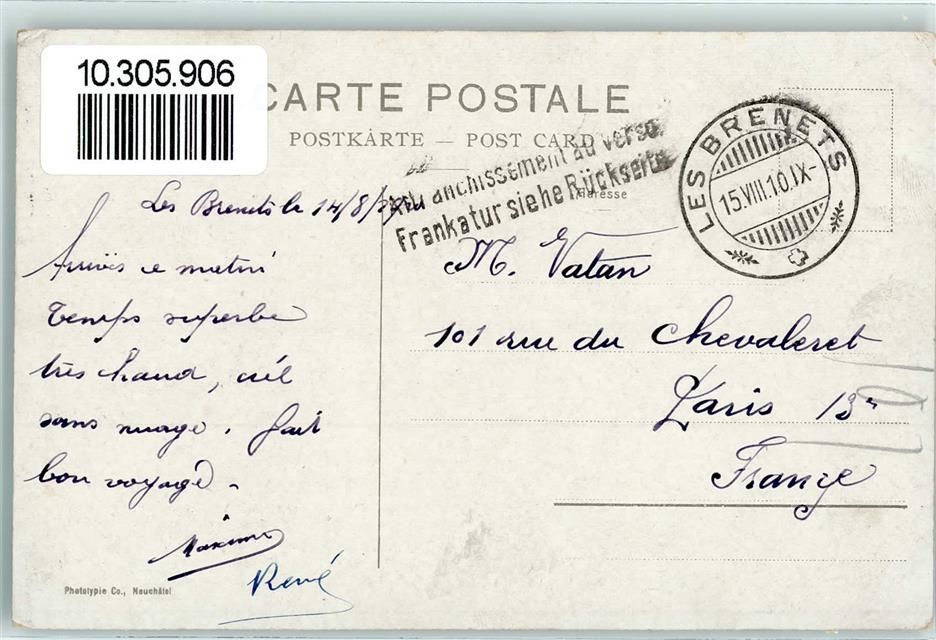 10.305.906
CARTE POSTALE
POSTKARTE — POST CARD
Affranchissement au verso.
Frankatur siehe Rückseite
Adresse
LES BRENETS
15.VIII.10.IX-
Les Brenets le 14/8/
Arrivés ce matin
Temps superbe
très chaud, ciel
sans nuage. fait
bon voyage -
Maxime
René
M. Vatan
101 rue du Chevaleret
Paris 13e
France
Phototypie Co., Neuchâtel